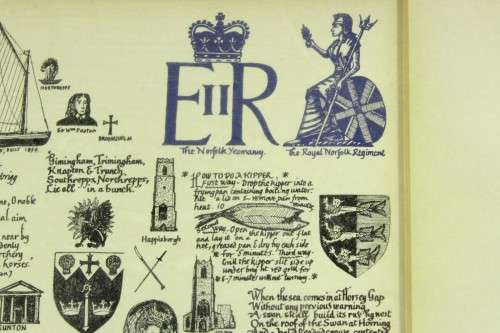 E II R
The Norfolk Yeomanry.
The Royal Norfolk Regiment
NORTHREPPS
Sir Wm Paston
BROMHOLM
built 1898
Gimingham, Trimingham,
Knapton & Trunch,
Southrepps, Northrepps,
Lie all in a bunch.
Happisburgh
HOW TO DO A KIPPER.
First way - Drop the kipper into a
frying pan containing boiling water.
Put a lid on & remove pan from
heat 10 minutes
Second way. Open the kipper out flat
and lay it on a
hot, greased pan & dry each side
for 5 minutes. Third way.
Grill the kipper slit side up
under big he red grill for
6-7 minutes without turning.
one, O noble
al aim
near by
denly
rchery
horses.
an)
UNTON
When the sea comes in at Horsey Gap
Without any previous warning
A swan shall build its rushy nest
On the roof of the Swan at Horning